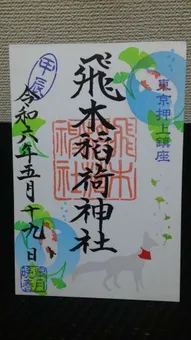 東京押上鎮座
飛木稲荷神社
飛木
稲荷
神社
甲辰
令和六年五月十九日
皐月